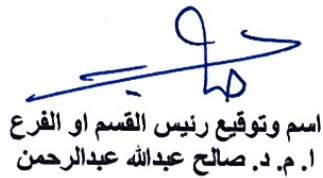 اسم وتوقيع رئيس القسم او الفرع
ا. م. د. صالح عبدالله عبدالرحمن